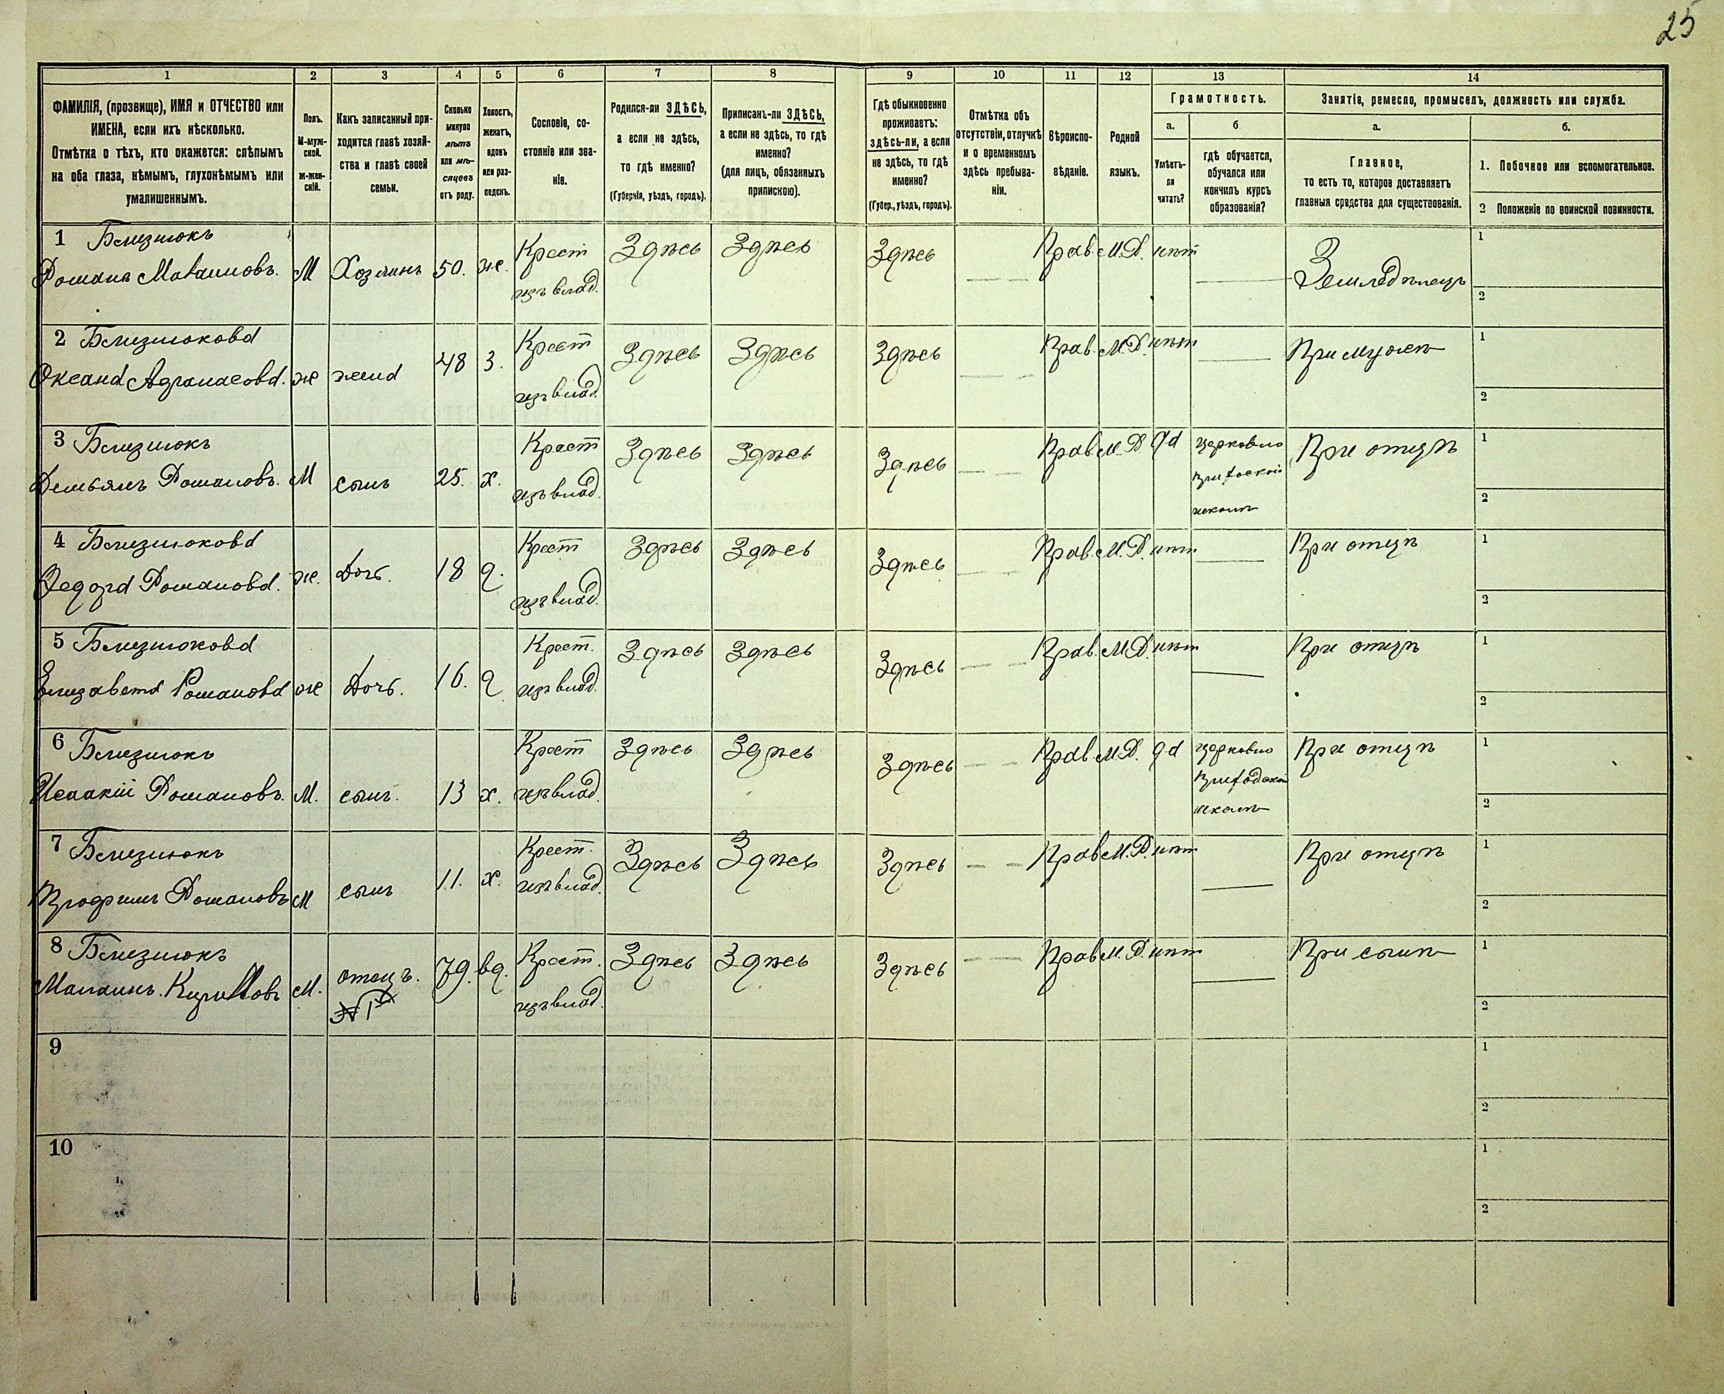 25
1 2 3 4 5 6 7 8 9 10 11 12 13 14
ФАМИЛІЯ, (прозвище), ИМЯ и ОТЧЕСТВО или
ИМЕНА, если ихъ нѣсколько.
Отмѣтка о тѣхъ, кто окажется: слѣпымъ
на оба глаза, нѣмымъ, глухонѣмымъ или
умалишеннымъ.
Полъ.
М-муж-
ской.
ж-жен-
скій.
Какъ записанный при-
ходится главѣ хозяй-
ства и главѣ своей
семьи.
Сколько
минуло
лѣтъ
или мѣ-
сяцевъ
отъ роду.
Холостъ,
женатъ,
вдовъ
или раз-
веденъ.
Сословіе, со-
стояніе или зва-
ніе.
Родился-ли ЗДѢСЬ,
а если не здѣсь,
то гдѣ именно?
(Губернія, уѣздъ, городъ).
Приписанъ-ли ЗДѢСЬ,
а если не здѣсь, то гдѣ
именно?
(для лицъ, обязанныхъ
припискою).
Гдѣ обыкновенно
проживаетъ:
здѣсь-ли, а если
не здѣсь, то гдѣ
именно?
(Губер., уѣздъ, городъ).
Отмѣтка объ
отсутствіи, отлучкѣ
и о временномъ
здѣсь пребыва-
ніи.
Вѣроиспо-
вѣданіе.
Родной
языкъ.
Грамотность.
а.
Умѣетъ-
ли
читать?
б
гдѣ обучается,
обучался или
кончилъ курсъ
образованія?
Занятіе, ремесло, промыселъ, должность или служба.
а.
Главное,
то есть то, которое доставляетъ
главныя средства для существованія.
б.
1. Побочное или вспомогательное.
2 Положеніе по воинской повинности.
1 Близнюкъ
Романъ Малаховъ. М Хозяинъ 50. же. Крест Здѣсь Здѣсь Здѣсь Прав. М.Р. нѣт Земледѣлецъ 1
изъ влад. 2
2 Близнюкова
Оксана Афанасова. ж жена 48 з. Крест Здѣсь Здѣсь Здѣсь Прав. М.Р. нѣт При мужѣ 1
изъ влад. 2
3 Близнюкъ
Демьянъ Романовъ. М сынъ 25. х. Крест Здѣсь Здѣсь Здѣсь Прав. М.Р. да церковно При отцѣ 1
изъ влад. приходской
школѣ 2
4 Близнюкова
Федора Романова. ж. Дочь. 18 д. Крест Здѣсь Здѣсь Здѣсь Прав. М.Р. нѣт При отцѣ 1
изъ влад. 2
5 Близнюкова
Елизавета Романова ж Дочь. 16. д Крест. Здѣсь Здѣсь Здѣсь Прав. М.Р. нѣт При отцѣ 1
изъ влад. 2
6 Близнюкъ
Исаакій Романовъ. М. сынъ. 13 х. Крест Здѣсь Здѣсь Здѣсь Прав. М.Р. да церковно При отцѣ 1
изъ влад. приходской
школѣ 2
7 Близнюкъ
Трофимъ Романовъ М сынъ 11. х. Крест. Здѣсь Здѣсь Здѣсь Прав. М.Р. нѣт При отцѣ 1
изъ влад. 2
8 Близнюкъ
М. отецъ. 79. вд. Крест. Здѣсь Здѣсь Здѣсь Прав. М.Р. нѣт При сынѣ 1
№ 1й изъ влад. 2
9 1
2
10 1
2